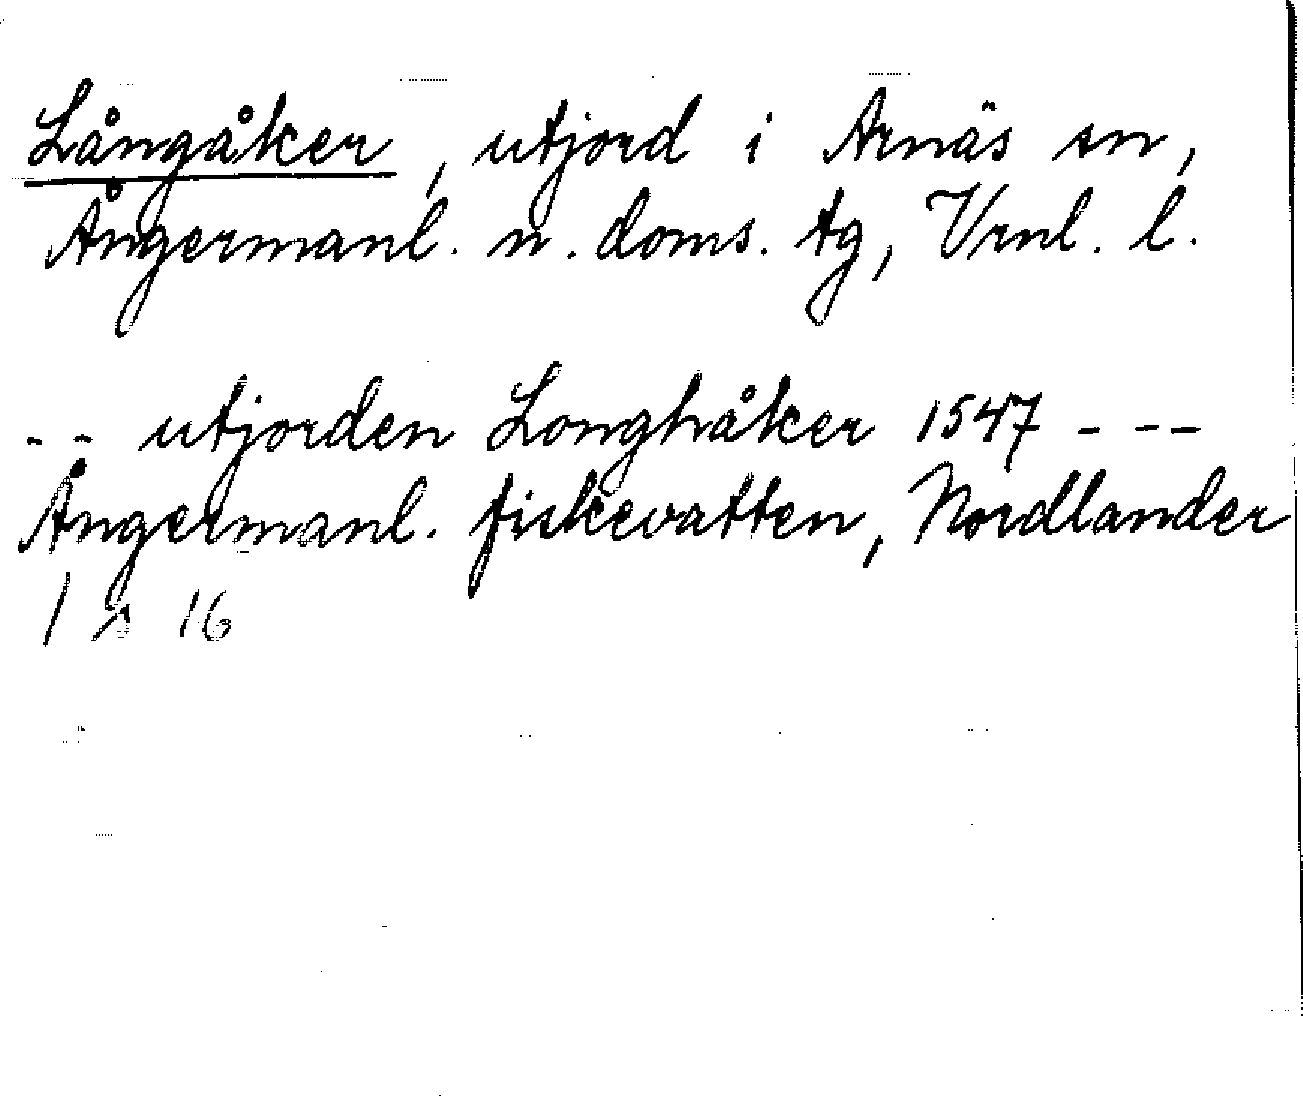 Långåker, utjord i Arnäs sn,
Ångermanl. n. doms. tg, Vrnl. l.
-- utjorden Longhåker 1547 ---
Ångermanl. fiskevatten, Nordlander
1 s 16